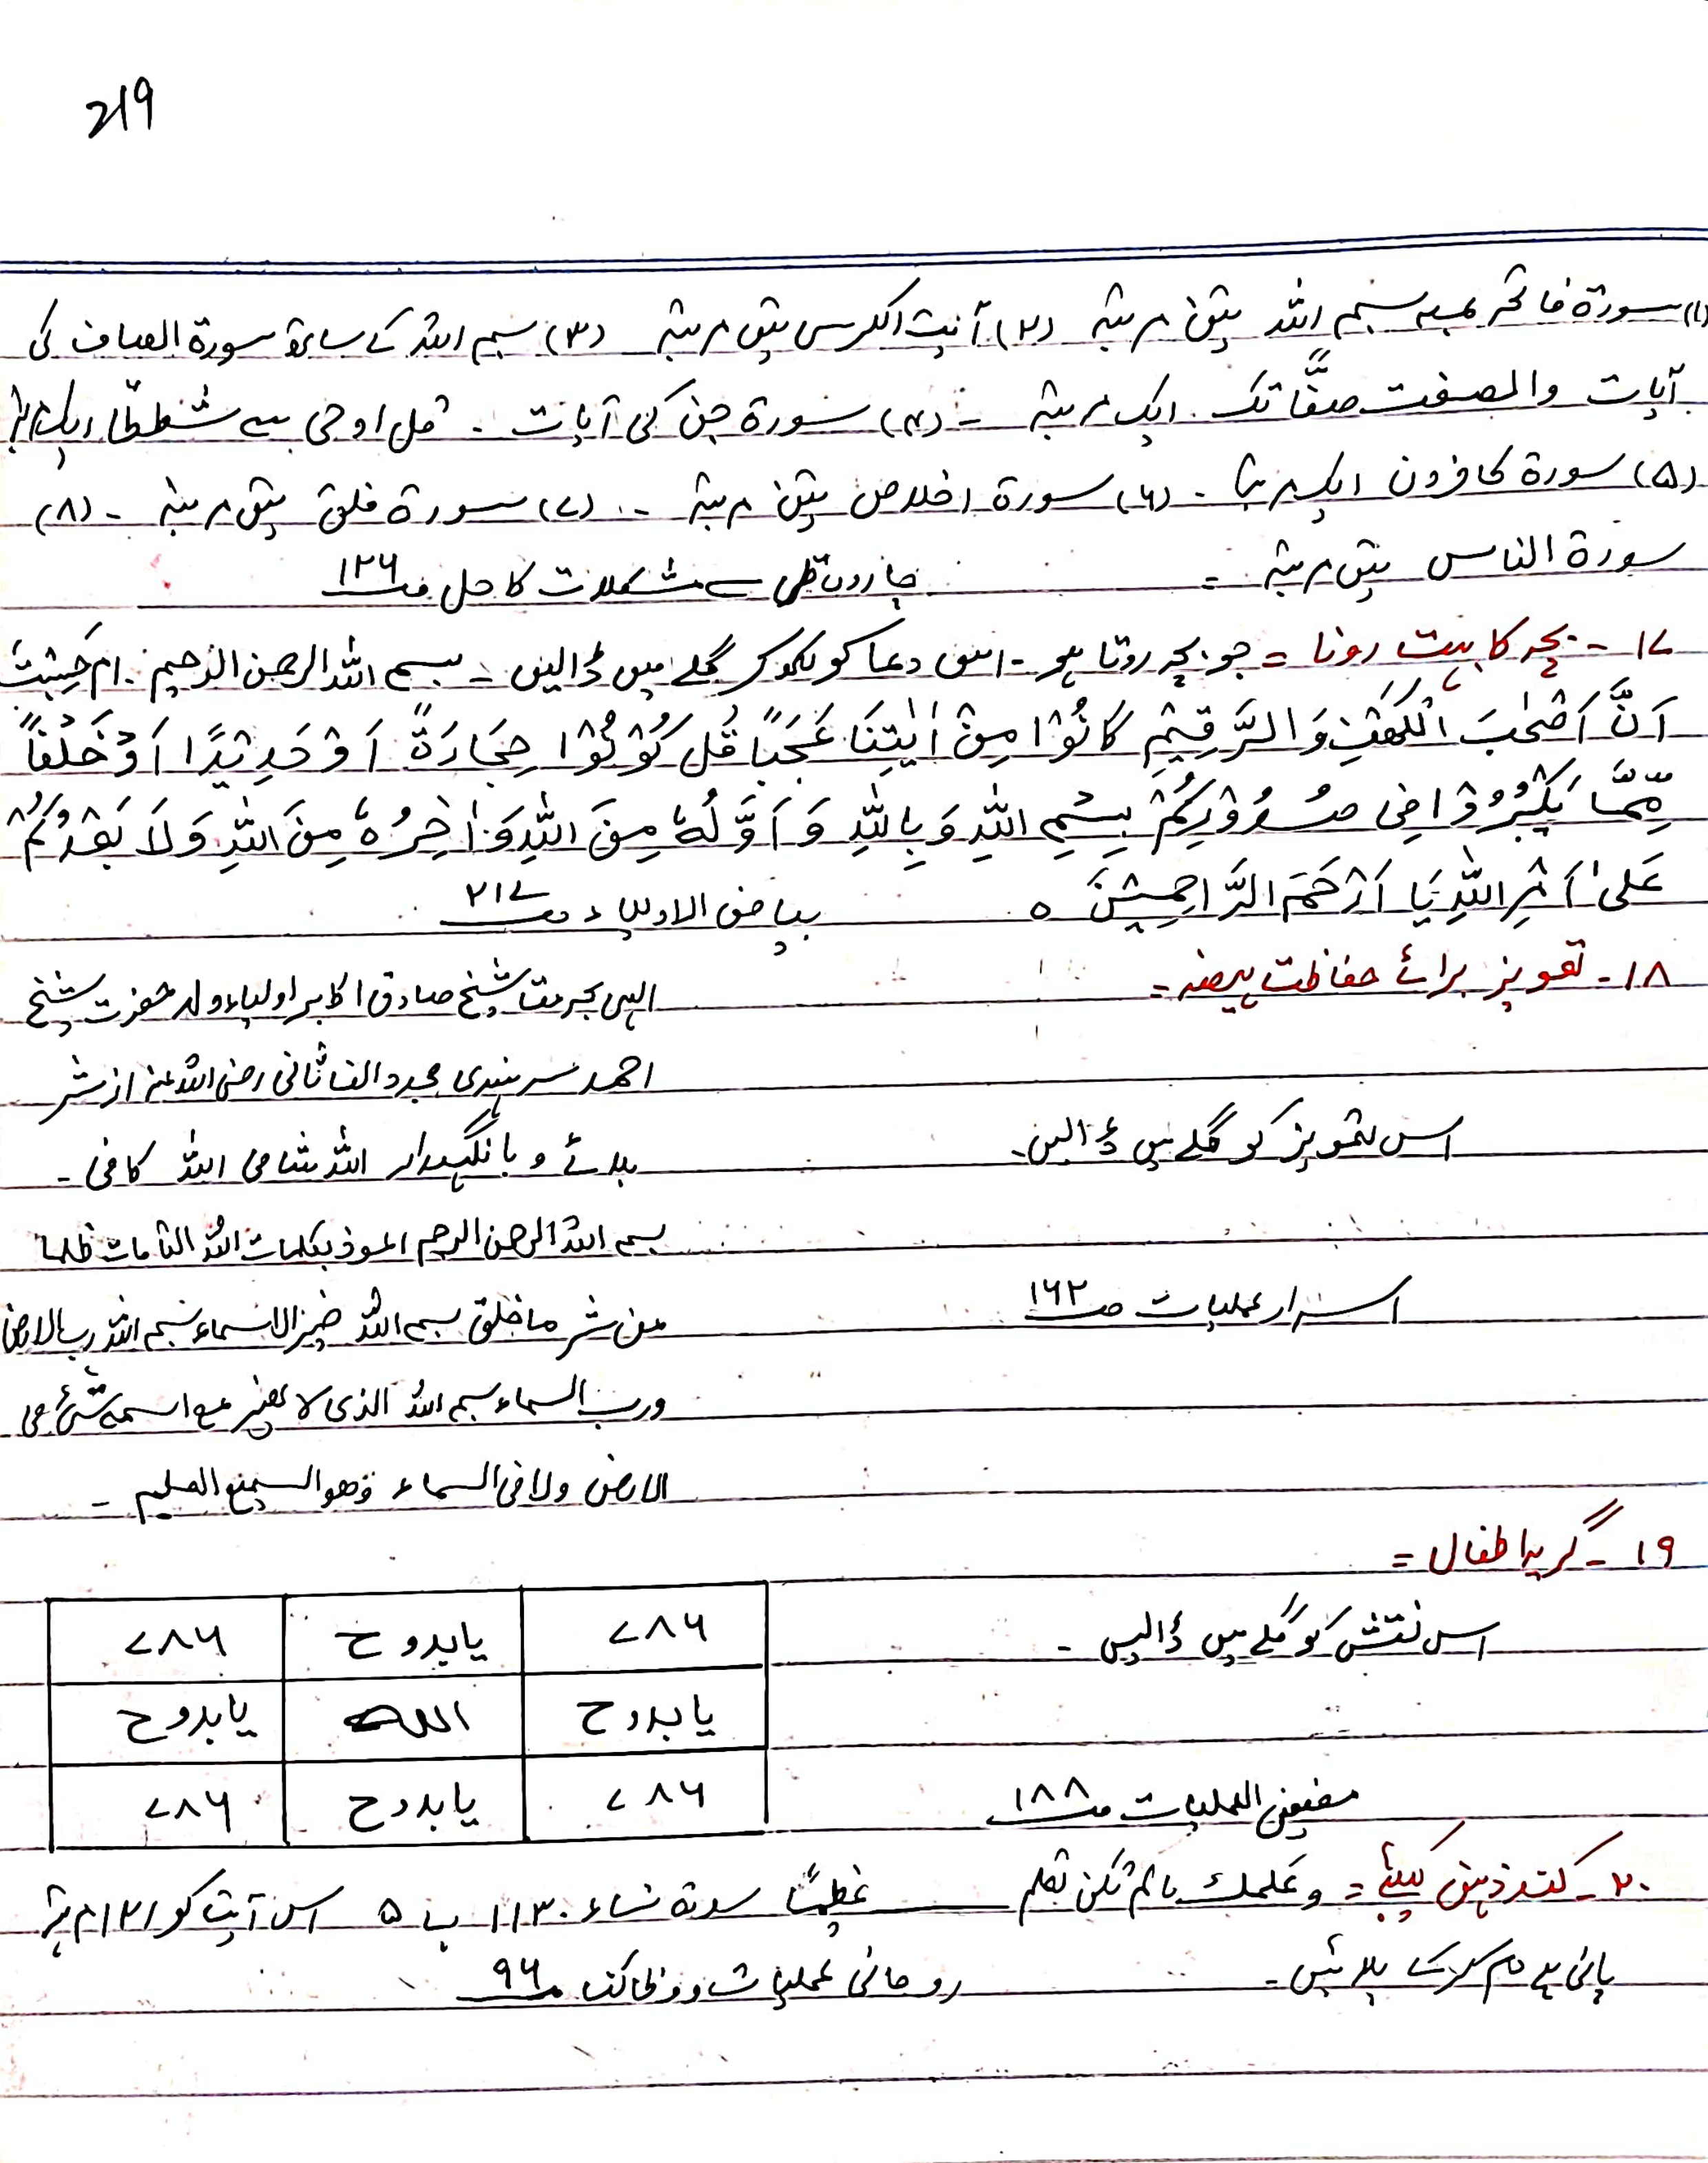 219
(۱) سورۃ فاتحہ بمعہ بسم اللہ تین مرتبہ (۲) آیت الکرسی تین مرتبہ (۳) بسم اللہ کے ساتھ سورۃ الصاف کی
آیات والصفت صفًّا تک ایک مرتبہ - (۴) سورۃ جن کی آیات - قل اوحی سے شططًا ایک مرتبہ
(۵) سورۃ کافرون ایک مرتبہ - (۶) سورۃ اخلاص تین مرتبہ - (۷) سورۃ فلق تین مرتبہ - (۸)
سورۃ الناس تین مرتبہ = سے مشکلات کا حل صـ ۱۲۶
۱۷ - بچہ کا بہت رونا = جو بچہ روتا ہو - اس دعا کو لکھ کر گلے میں ڈالیں - بسم اللہ الرحمن الرحیم - ام حَسِبْتَ
اَنَّ اَصْحٰبَ الْکَهْفِ وَ الرَّقِیْمِ کَانُوْا مِنْ اٰیٰتِنَا عَجَبًا قُلْ کُوْنُوْا حِجَارَةً اَوْ حَدِیْدًا اَوْ خَلْقًا
مِّمَّا یَکْبُرُ فِی صُدُوْرِکُمْ بِسْمِ اللّٰهِ وَ بِاللّٰهِ وَ اَوَّلُهٗ مِنَ اللّٰهِ وَ اٰخِرُهٗ مِنَ اللّٰهِ وَ لَا
عَلیٰ اَمْرِ اللّٰهِ یَا اَرْحَمَ الرَّاحِمِیْنَ ہ بیاض الاولیاء صـ ۲۱۷
۱۸ - تعویز برائے حفاظت ہیضہ = الہی بحرمت شیخ صادق اکابر اولیاء ولد حضرت شیخ
احمد سرہندی مجدد الف ثانی رضی اللہ عنہ از شر
اس تعویز کو گلے میں ڈالیں - بلائے وبا نگہدار اللہ شافی اللہ کافی -
بسم اللہ الرحمن الرحیم اعوذ بکلمات اللہ التامات کلھا
اسرار عملیات صـ ۱۶۲ من شر ما خلق بسم اللہ خیر الاسماء بسم اللہ رب الارض
ورب السماء بسم اللہ الذی لا یضر مع اسمہ شئ فی
الارض ولا فی السماء وھو السمیع العلیم -
۱۹ - گریہ اطفال =
اس نقش کو گلے میں ڈالیں - ۷۸۶ یابدوح ۷۸۶
یابدوح اللہ یابدوح
العملیات صـ ۱۸۸ ۷۸۶ یابدوح ۷۸۶
۲۰ - کند ذہن کیلئے = وعلمك مالم تکن تعلم عظیمًا سورۃ نساء ۱۱۳ پ ۵ اس آیت کو ۱۲۱ مرتبہ
پانی پہ دم کرکے پلائیں - روحانی عملیات و وظائف صـ ۹۶